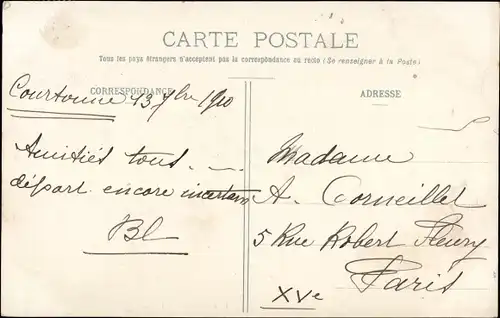 CARTE POSTALE
Tous les pays étrangers n'acceptent pas la correspondance au recto (Se renseigner à la Poste)
CORRESPONDANCE
ADRESSE
Courtonne 13 7bre 1910
Amitiés tous . — .
départ encore incertain
BL
Madame
A. Corneillet
5 Rue Robert Fleury
Paris
XVe